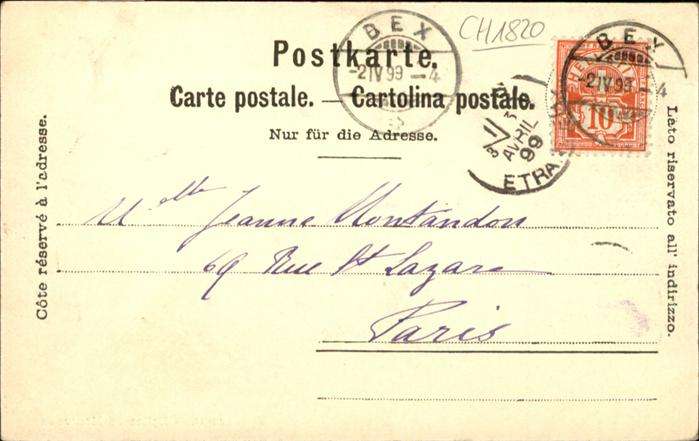 CH1820
BEX
-2 IV 99 - 4
BEX
-2 IV 99 - 4
10
Postkarte.
Carte postale. — Cartolina postale.
Nur für die Adresse.
AVRIL
99
ETRA
Côte réservé à l'adresse.
Lato riservato all' indirizzo.
Mlle Jeanne Montandon
69 Rue St Lazare
Paris